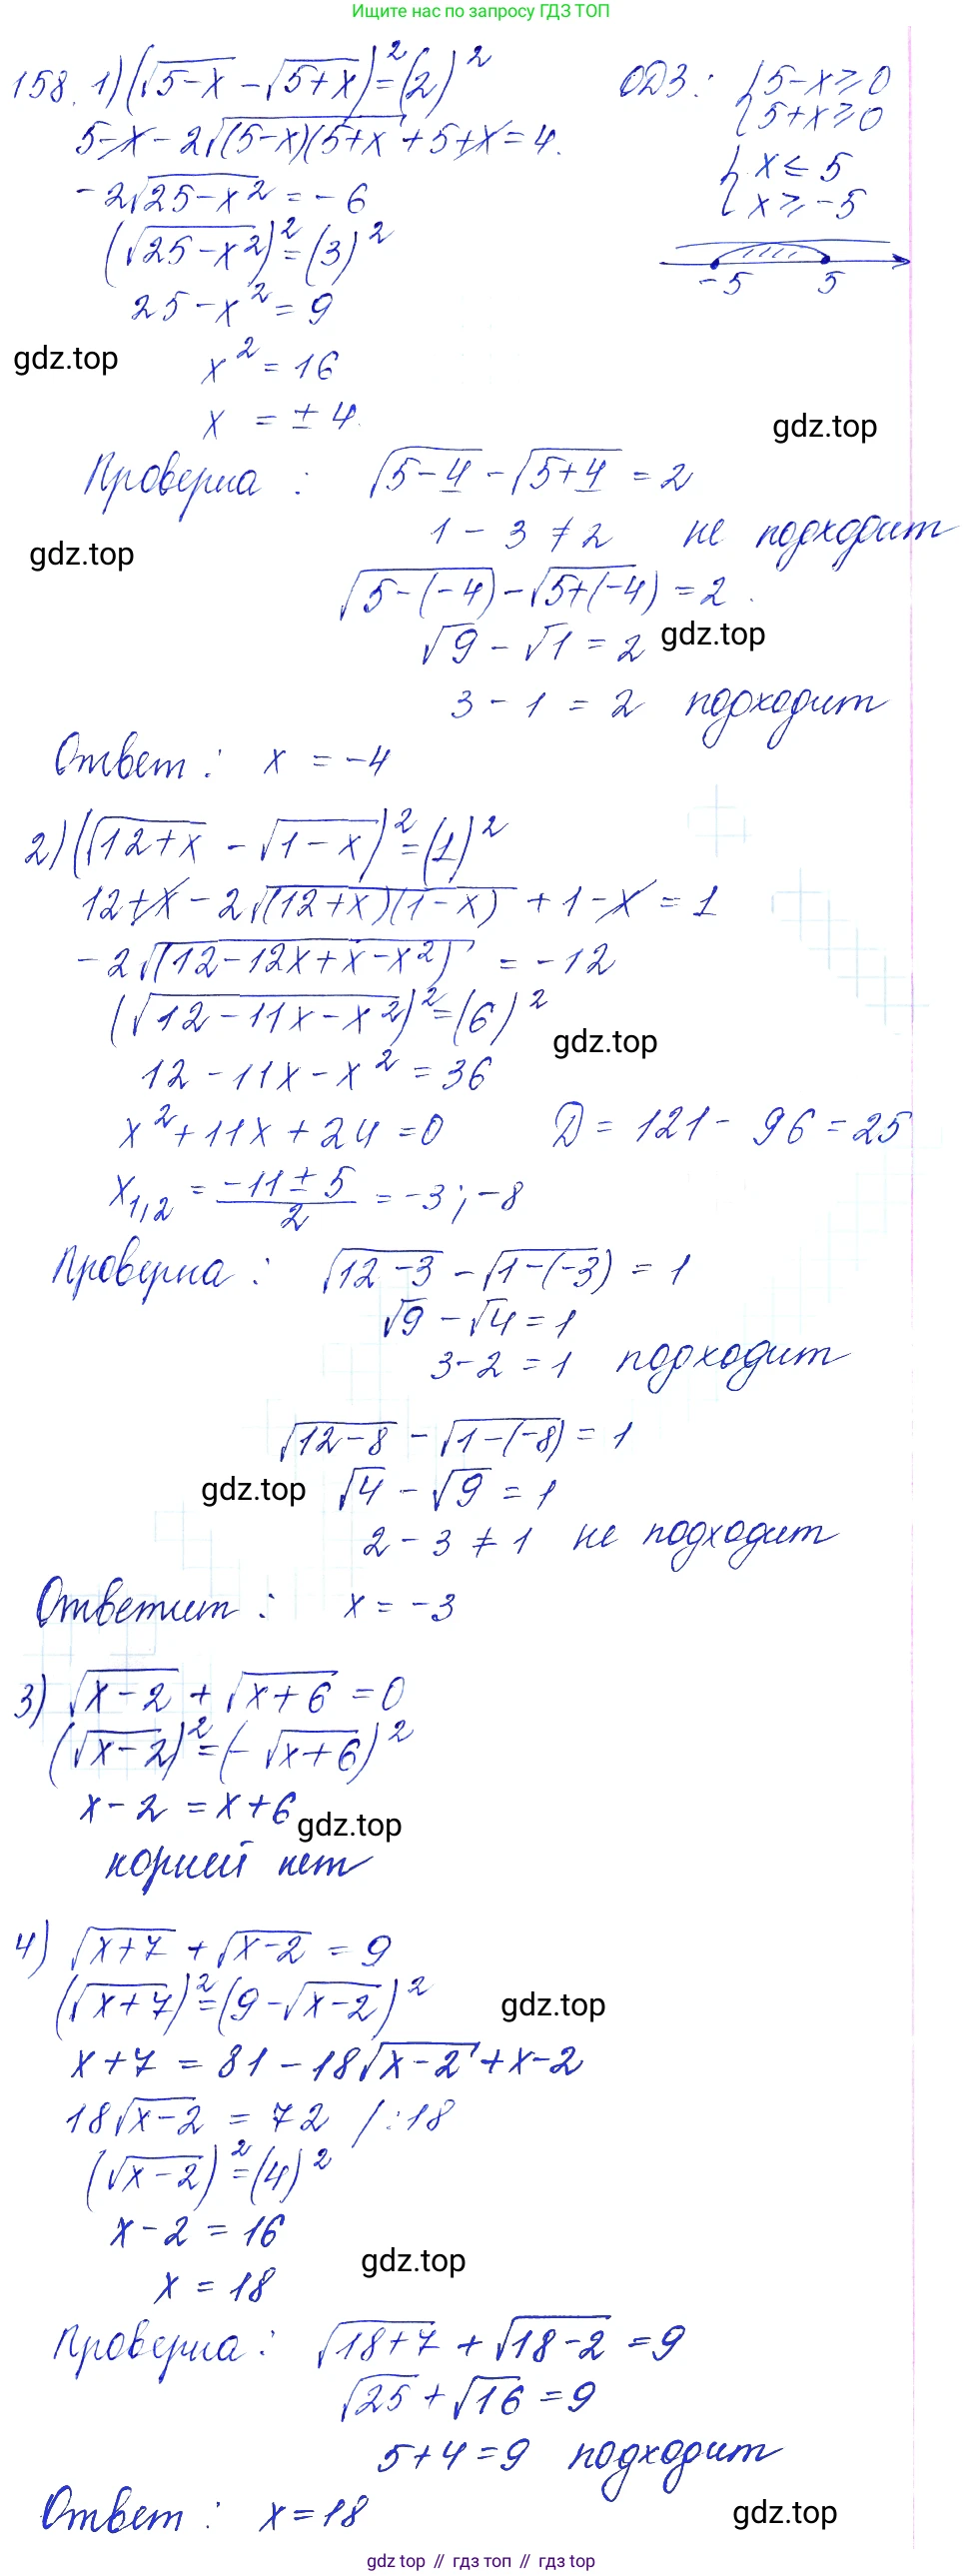 Ищите нас по запросу ГДЗ ТОП
158. 1) (√(5-x) - √(5+x))² = (2)²
ОДЗ: { 5-x ≥ 0
{ 5+x ≥ 0
5-x - 2√((5-x)(5+x)) + 5+x = 4.
{ x ≤ 5
{ x ≥ -5
-2√(25-x²) = -6
(√(25-x²))² = (3)²
-5 5
25-x² = 9
gdz.top
x² = 16
x = ±4.
gdz.top
Проверка: √(5-4) - √(5+4) = 2
1 - 3 ≠ 2 не подходит
gdz.top
√(5-(-4)) - √(5+(-4)) = 2.
√9 - √1 = 2
gdz.top
3 - 1 = 2 подходит
Ответ: x = -4
2) (√(12+x) - √(1-x))² = (1)²
12+x - 2√((12+x)(1-x)) + 1-x = 1
-2√(12-12x+x-x²) = -12
(√(12-11x-x²))² = (6)²
gdz.top
12-11x-x² = 36
x²+11x+24 = 0 D = 121 - 96 = 25
x₁,₂ = (-11±5)/2 = -3; -8
Проверка: √(12-3) - √(1-(-3)) = 1
√9 - √4 = 1
3-2 = 1 подходит
√(12-8) - √(1-(-8)) = 1
gdz.top
√4 - √9 = 1
2 - 3 ≠ 1 не подходит
Ответит: x = -3
3) √(x-2) + √(x+6) = 0
(√(x-2))² = (-√(x+6))²
x-2 = x+6
gdz.top
корней нет
4) √(x+7) + √(x-2) = 9
(√(x+7))² = (9-√(x-2))²
gdz.top
x+7 = 81 - 18√(x-2) + x-2
18√(x-2) = 72 /:18
(√(x-2))² = (4)²
x-2 = 16
gdz.top
x = 18
Проверка: √(18+7) + √(18-2) = 9
√25 + √16 = 9
5+4 = 9 подходит
Ответ: x = 18
gdz.top
gdz top // гдз топ // gdz top